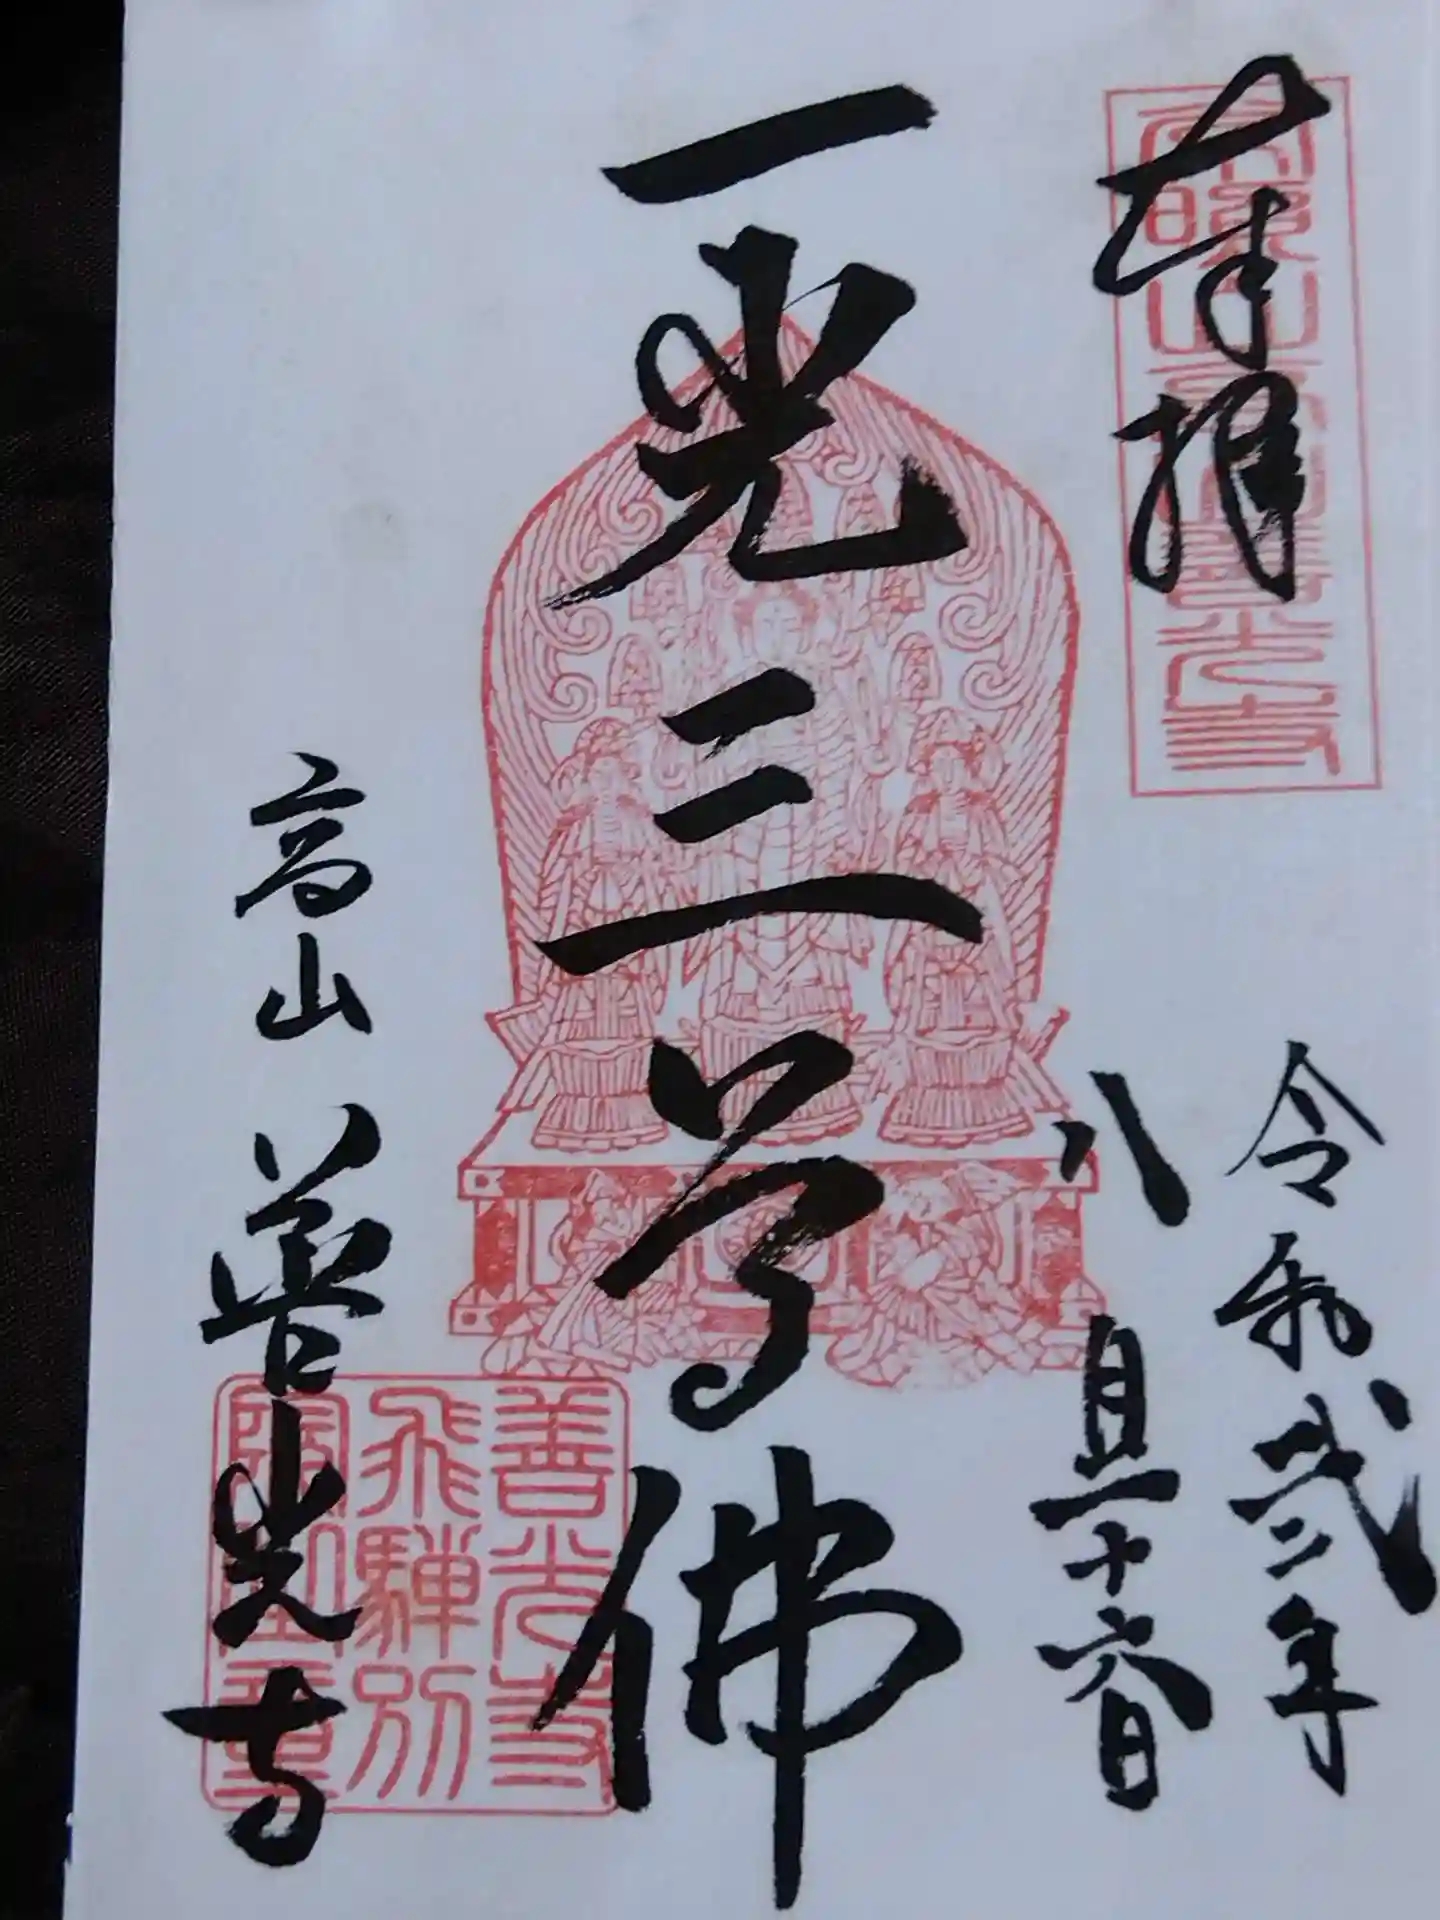 奉拝
令和弐年
八月二十六日
一光三尊佛
高山 善光寺
善光寺
飛騨別
院宝章